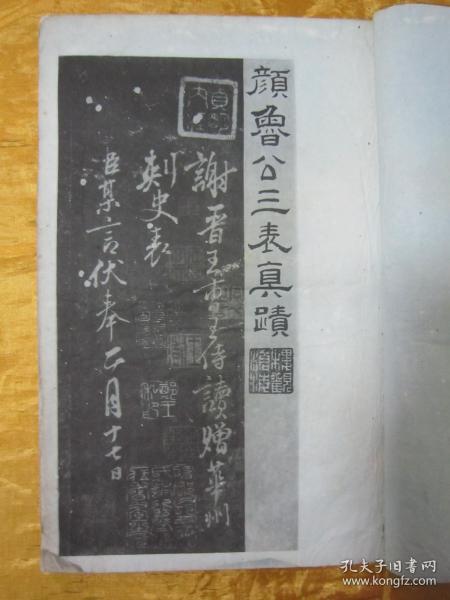 顔魯公三表真蹟
謝晋王市皇侍讀贈華州
刺史表
臣某言伏奉二月十七日
孔夫子旧书网
www.kongfz.com